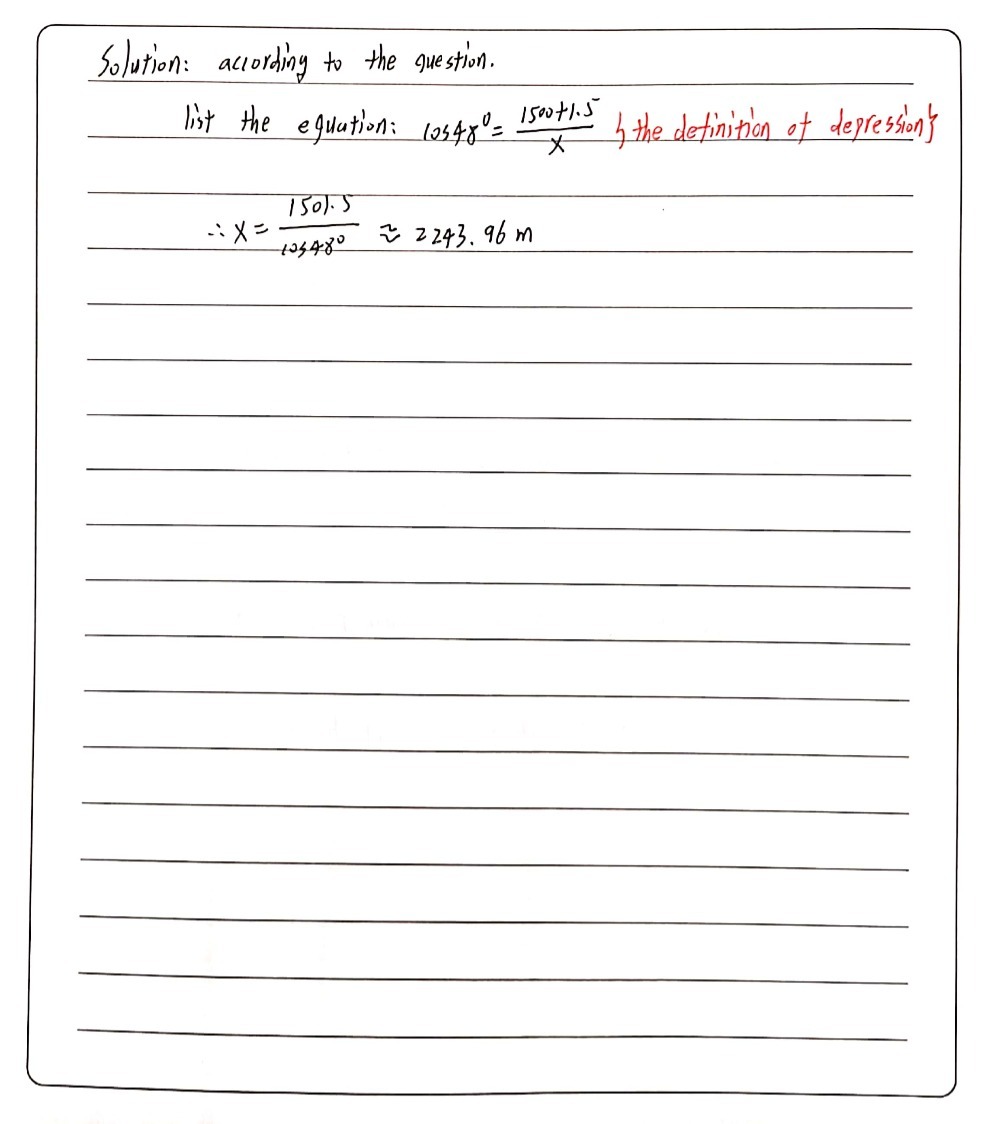 Solution: according to the question.
list the equation: cos48° = (1500+1.5)/x {the definition of depression}
∴ x = 1501.5/cos48° ≈ 2243.96 m